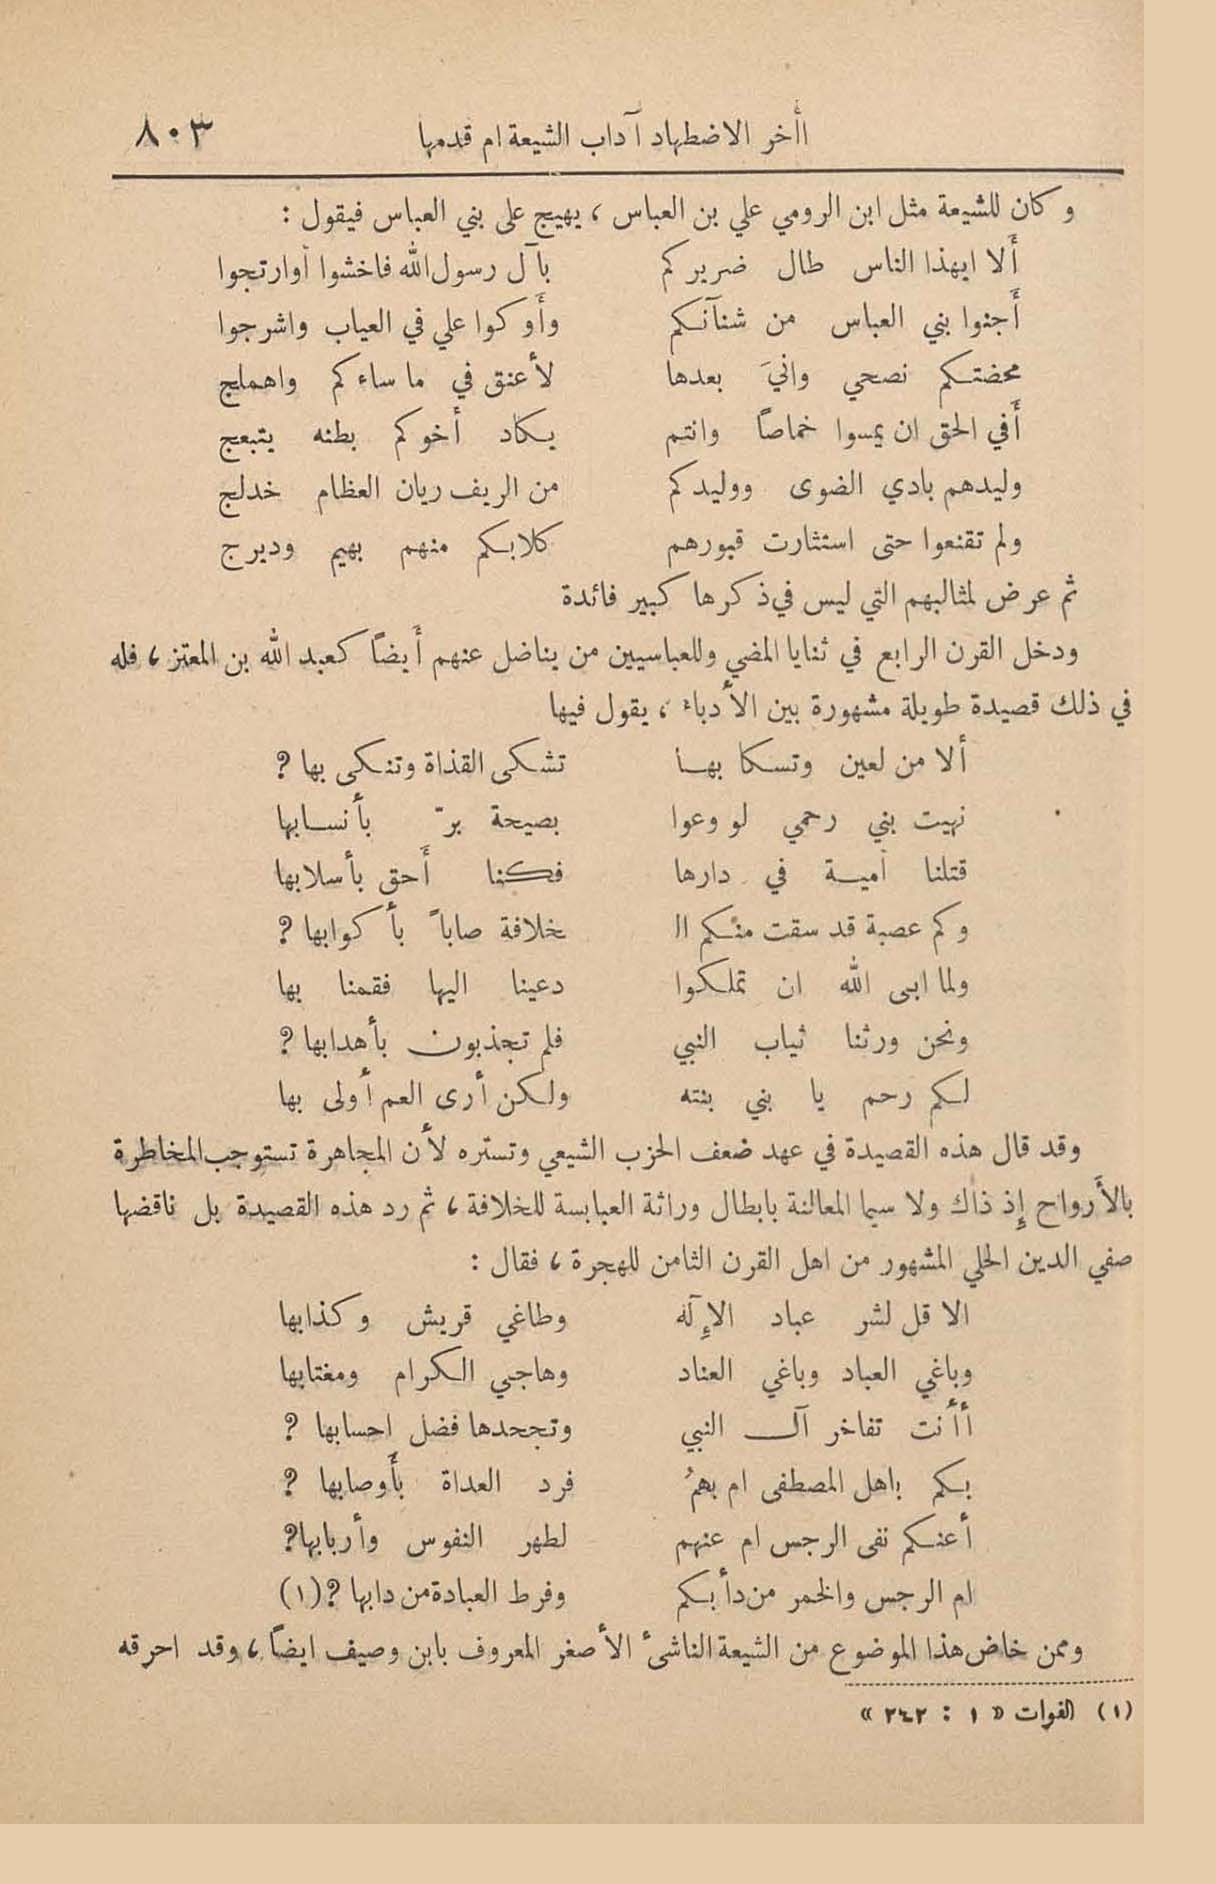 أأخر الاضطهاد آداب الشيعة ام قدمها ٨٠٣
وكان للشيعة مثل ابن الرومي علي بن العباس ، يهيج على بني العباس فيقول :
ألا ايهذا الناس طال ضريركم بآل رسول الله فاخشوا أوارتجوا
أجنوا بني العباس من شنآنكم وأوكوا علي في العياب واشرجوا
محضتكم نصحي واني بعدها لأعنق في ما ساءكم واهملج
أفي الحق ان يمسوا خماصاً وانتم يكاد أخوكم بطنه يتبعج
وليدهم بادي الضوى ووليدكم من الريف ريان العظام خدلج
ولم تقنعوا حتى استثارت قبورهم كلابكم منهم بهيم وديرج
ثم عرض لمثالبهم التي ليس في ذكرها كبير فائدة
ودخل القرن الرابع في ثنايا المضي وللعباسيين من يناضل عنهم أيضاً كعبد الله بن المعتز ، فله
في ذلك قصيدة طويلة مشهورة بين الأدباء ، يقول فيها
ألا من لعين وتسكا بها تشكى القذاة وتنكى بها ؟
نهيت بني رحمي لو وعوا بصيحة برّ بأنسابها
قتلنا أمية في دارها فكنا أحق بأسلابها
وكم عصبة قد سقت منكم الـ خلافة صاباً بأكوابها ؟
ولما ابى الله ان تملكوا دعينا اليها فقمنا بها
ونحن ورثنا ثياب النبي فلم تجذبون بأهدابها ؟
لكم رحم يا بني بنته ولكن أرى العم أولى بها
وقد قال هذه القصيدة في عهد ضعف الحزب الشيعي وتستره لأن المجاهرة تستوجب المخاطرة
بالأرواح إذ ذاك ولا سيما المعالنة بابطال وراثة العبابسة للخلافة ، ثم رد هذه القصيدة بل ناقضها
صفي الدين الحلي المشهور من اهل القرن الثامن للهجرة ، فقال :
الا قل لشر عباد الإله وطاغي قريش وكذابها
وباغي العباد وباغي العناد وهاجي الكرام ومغتابها
أأنت تفاخر آل النبي وتجحدها فضل احسابها ؟
بكم باهل المصطفى ام بهمُ فرد العداة بأوصابها ؟
أعنكم نفى الرجس ام عنهم لطهر النفوس وأربابها؟
ام الرجس والخمر من دأبكم وفرط العبادة من دابها ؟ (١)
وممن خاض هذا الموضوع من الشيعة الناشئ الأصغر المعروف بابن وصيف ايضاً ، وقد احرقه
(١) الفوات « ١ : ٢٤٢ »